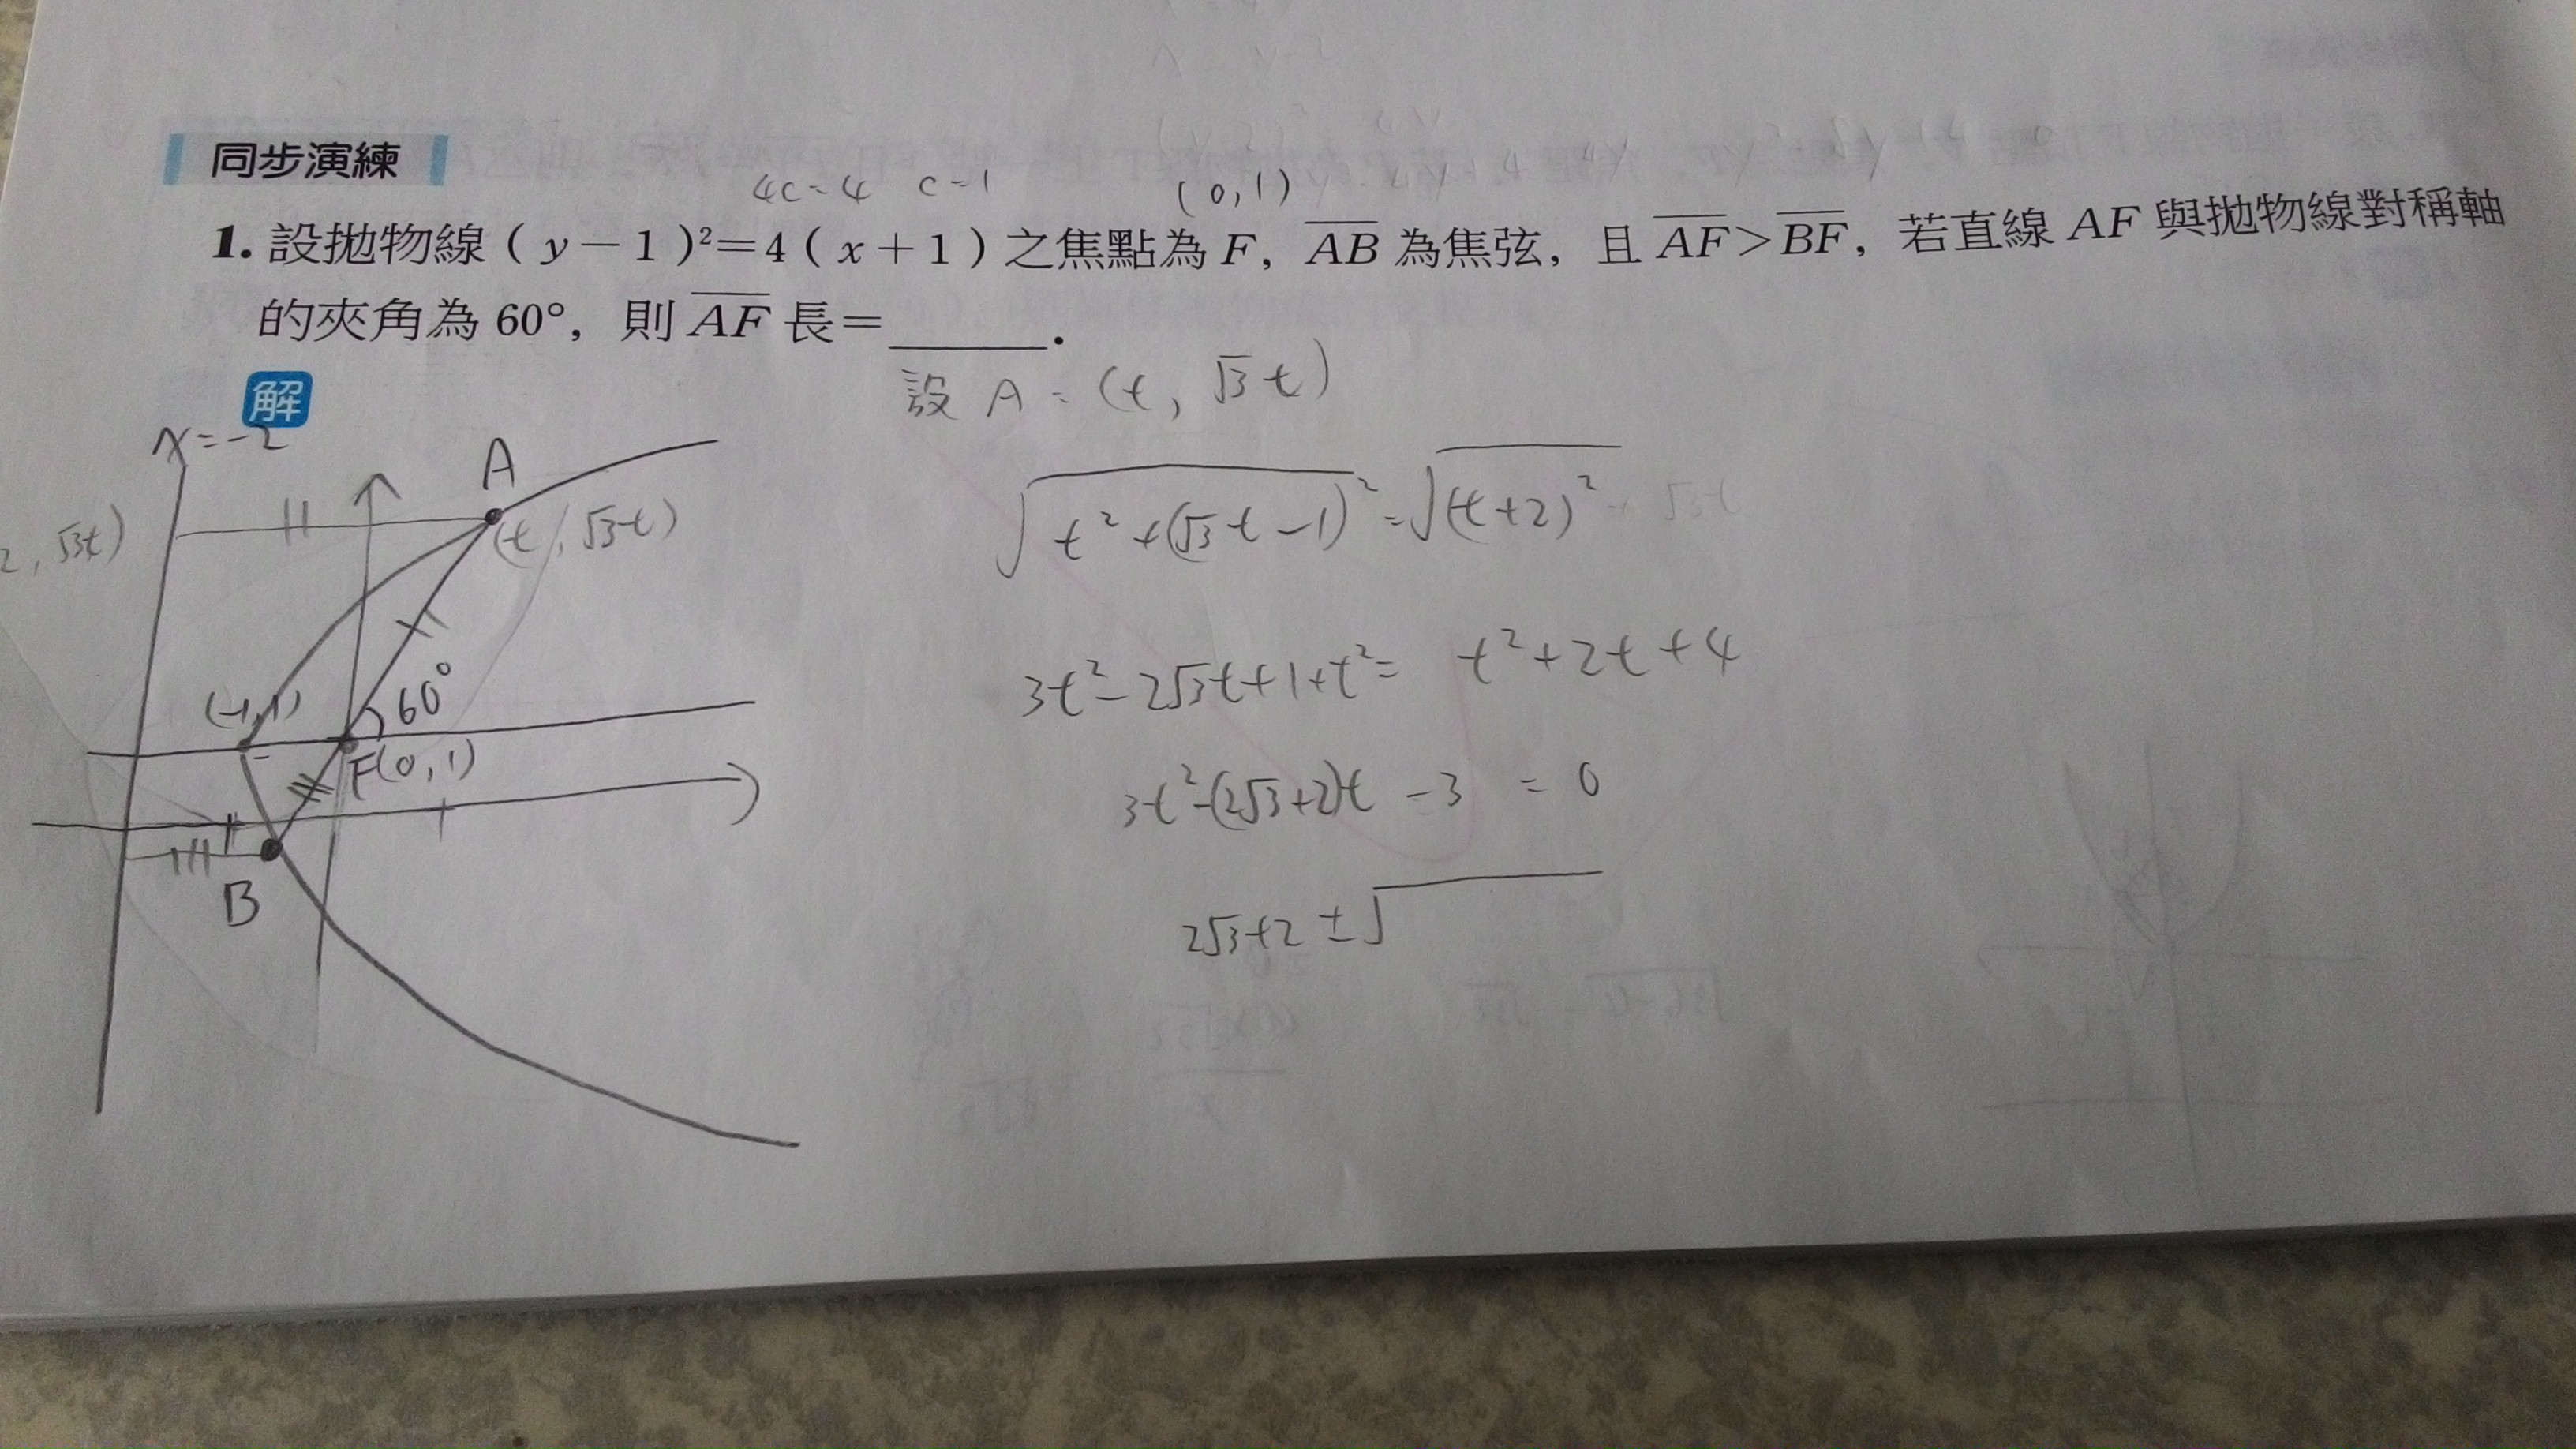 同步演練
4c=4 c=1 (0,1)
1. 設拋物線(y-1)²=4(x+1)之焦點為F, \overline{AB} 為焦弦, 且 \overline{AF}>\overline{BF}, 若直線AF與拋物線對稱軸
的夾角為60°, 則 \overline{AF} 長=______.
解
設 A=(t, √3t)
x=-2
A
(t, √3t)
2, √3t)
60°
(-1,1)
F(0,1)
B
√(t²+(√3t-1)²)=√((t+2)²)
3t²-2√3t+1+t²= t²+2t+4
3t²-(2√3+2)t-3=0
2√3+2±√